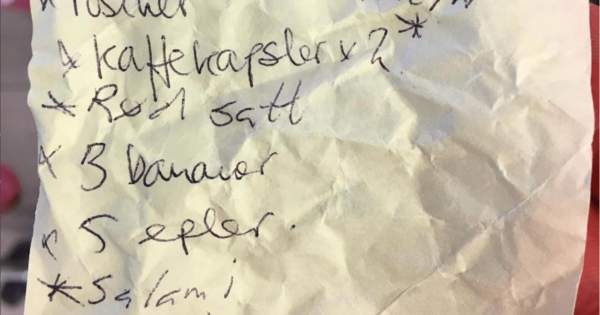 * Poscher
* Kaffekapsler x 2 *
* Rød saft
* 3 bananer
* 5 epler.
* Salami